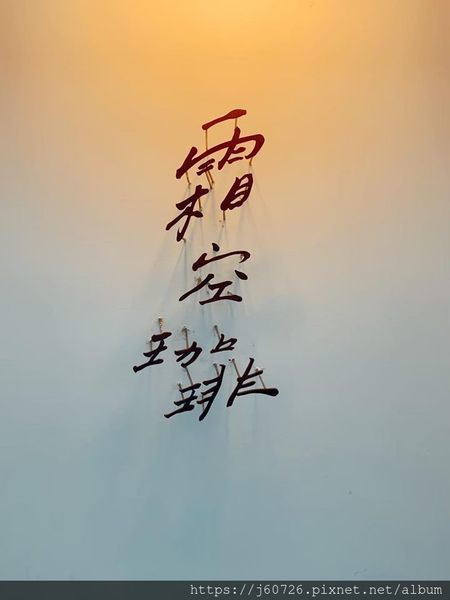 霜空珈琲
https://j60726.pixnet.net/album